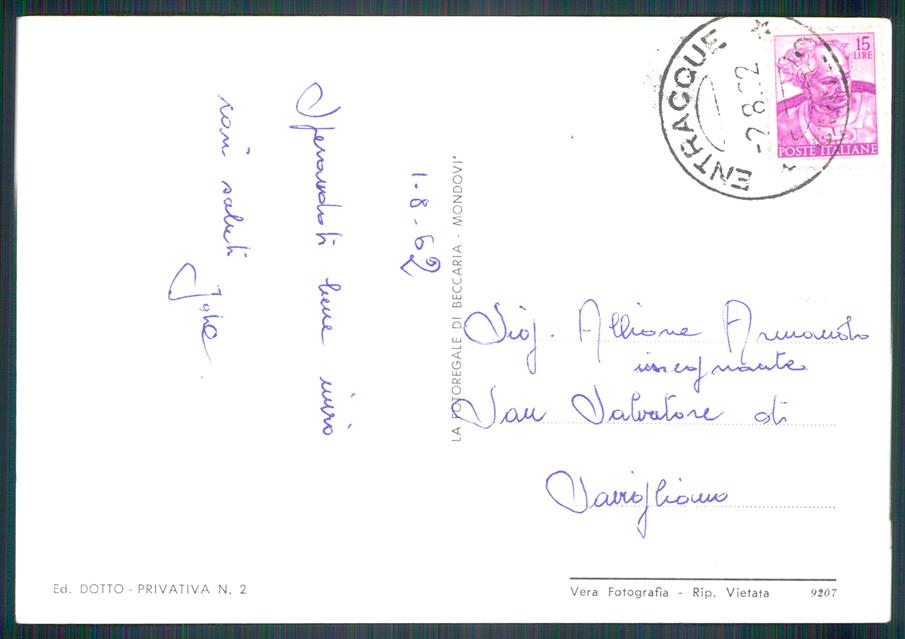 1-8-62
Sperandoti bene invio
cari saluti
LA FOTOREGALE DI BECCARIA - MONDOVI'
ENTRACQUE
-2.8.62
15
LIRE
POSTE ITALIANE
Sig. Allione Armando
insegnante
San Salvatore di
Savigliano
Ed. DOTTO - PRIVATIVA N. 2
Vera Fotografia - Rip. Vietata 9207